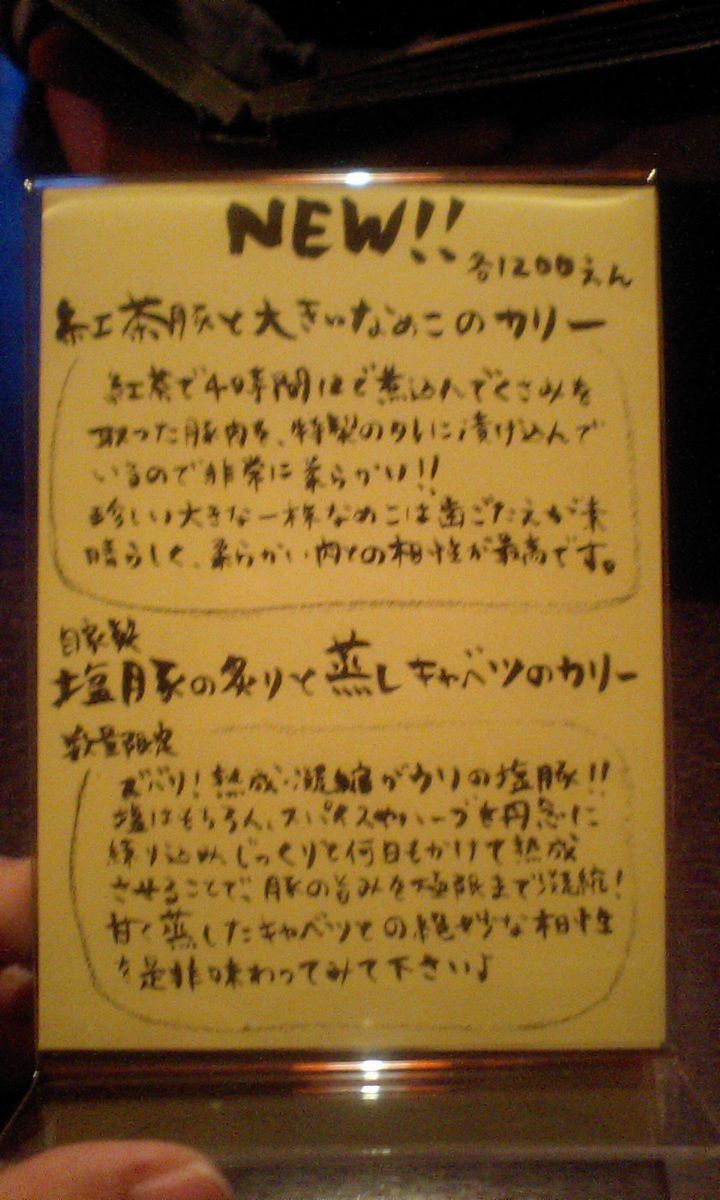 NEW!!
各1200えん
紅茶豚と大きいなめこのカリー
紅茶で4時間ほど煮込んでくさみを
取った豚肉を、特製のタレに漬け込んで
いるので非常に柔らかい!!
珍しい大きな一株なめこは歯ごたえが素
晴らしく、柔らかい肉との相性が最高です。
自家製
塩豚の炙りと蒸しキャベツのカリー
数量限定
ズバリ!熟成・凝縮がウリの塩豚!!
塩はもちろん、スパイスやハーブを丹念に
練り込め、じっくりと何日もかけて熟成
させることで、豚の旨みを極限まで凝縮!
甘く蒸したキャベツとの絶妙な相性
を是非味わってみて下さいよ